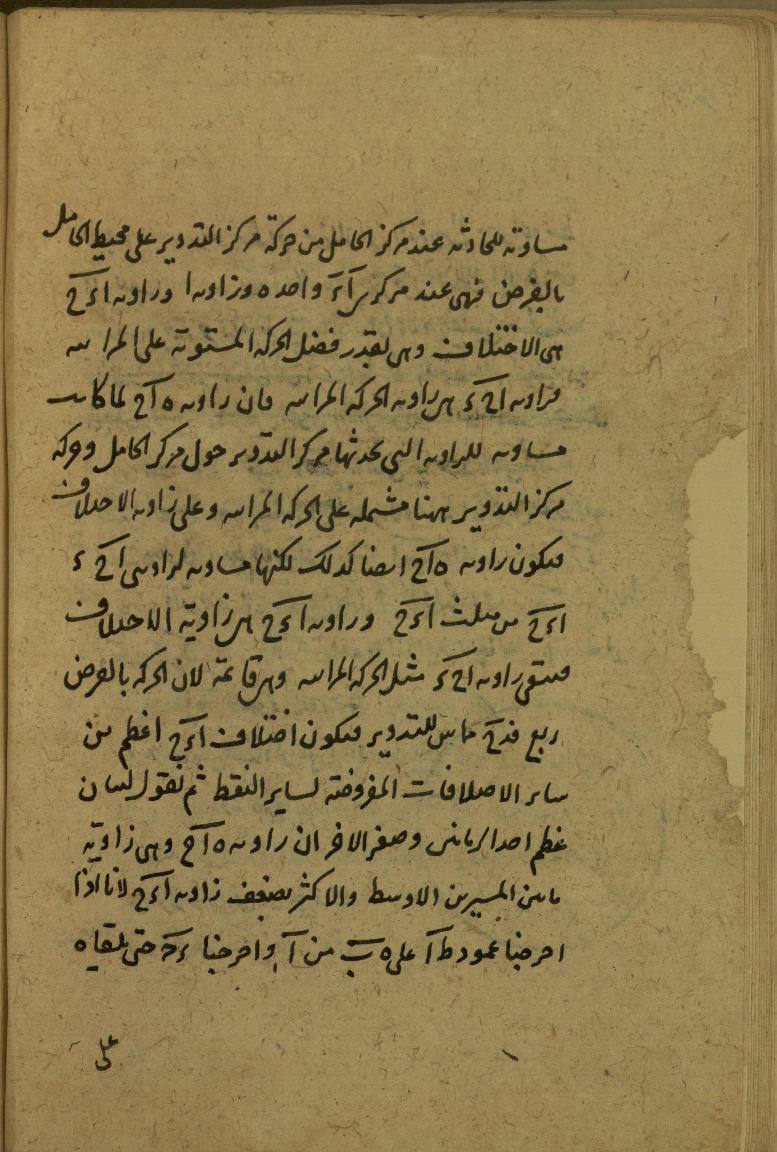 مساوته للحادثه عند مركز الحامل من حركة مركز التدوير على محيط الحامل
بالفرض فهى عند مركز واحده وزاويه ا وراويه اءح
هى الاختلاف وهى بقدر فضل الحركه المستوته على المراسه
فراويه اح ء هى راويه الحركه المراسه فان راويه ه اح لما كانت
مساويه للراويه التى تحدثها مركز التدوير حول مركز الحامل وحركه
مركز التدوير ههنا مشتمله على الحركه المراسه وعلى زاويه الاختلاف
فيكون راويه ه اح ايضا كدلك لكنها مساويه لراويتى اح ء
اءح من مثلث اءح وراويه اءح هى زاوية الاختلاف
فيبقى راويه اح ء مثل الحركه المراسه وهى قائمة لان الحركه بالفرض
ربع فدح مماس للتدوير فيكون اختلاف اءح اعظم من
ساير الاختلافات المفروضة لساير النقط ثم نقول لبيان
عظم احد الزمانين وصغر الاخر ان راويه ه اح وهى زاوية
مابين المسيرين الاوسط والاكثر يضعف زاويه اءح لانا اذا
اخرجنا عمود طا على ه ب من ا واخرجنا ءح حتى يلقاه
على